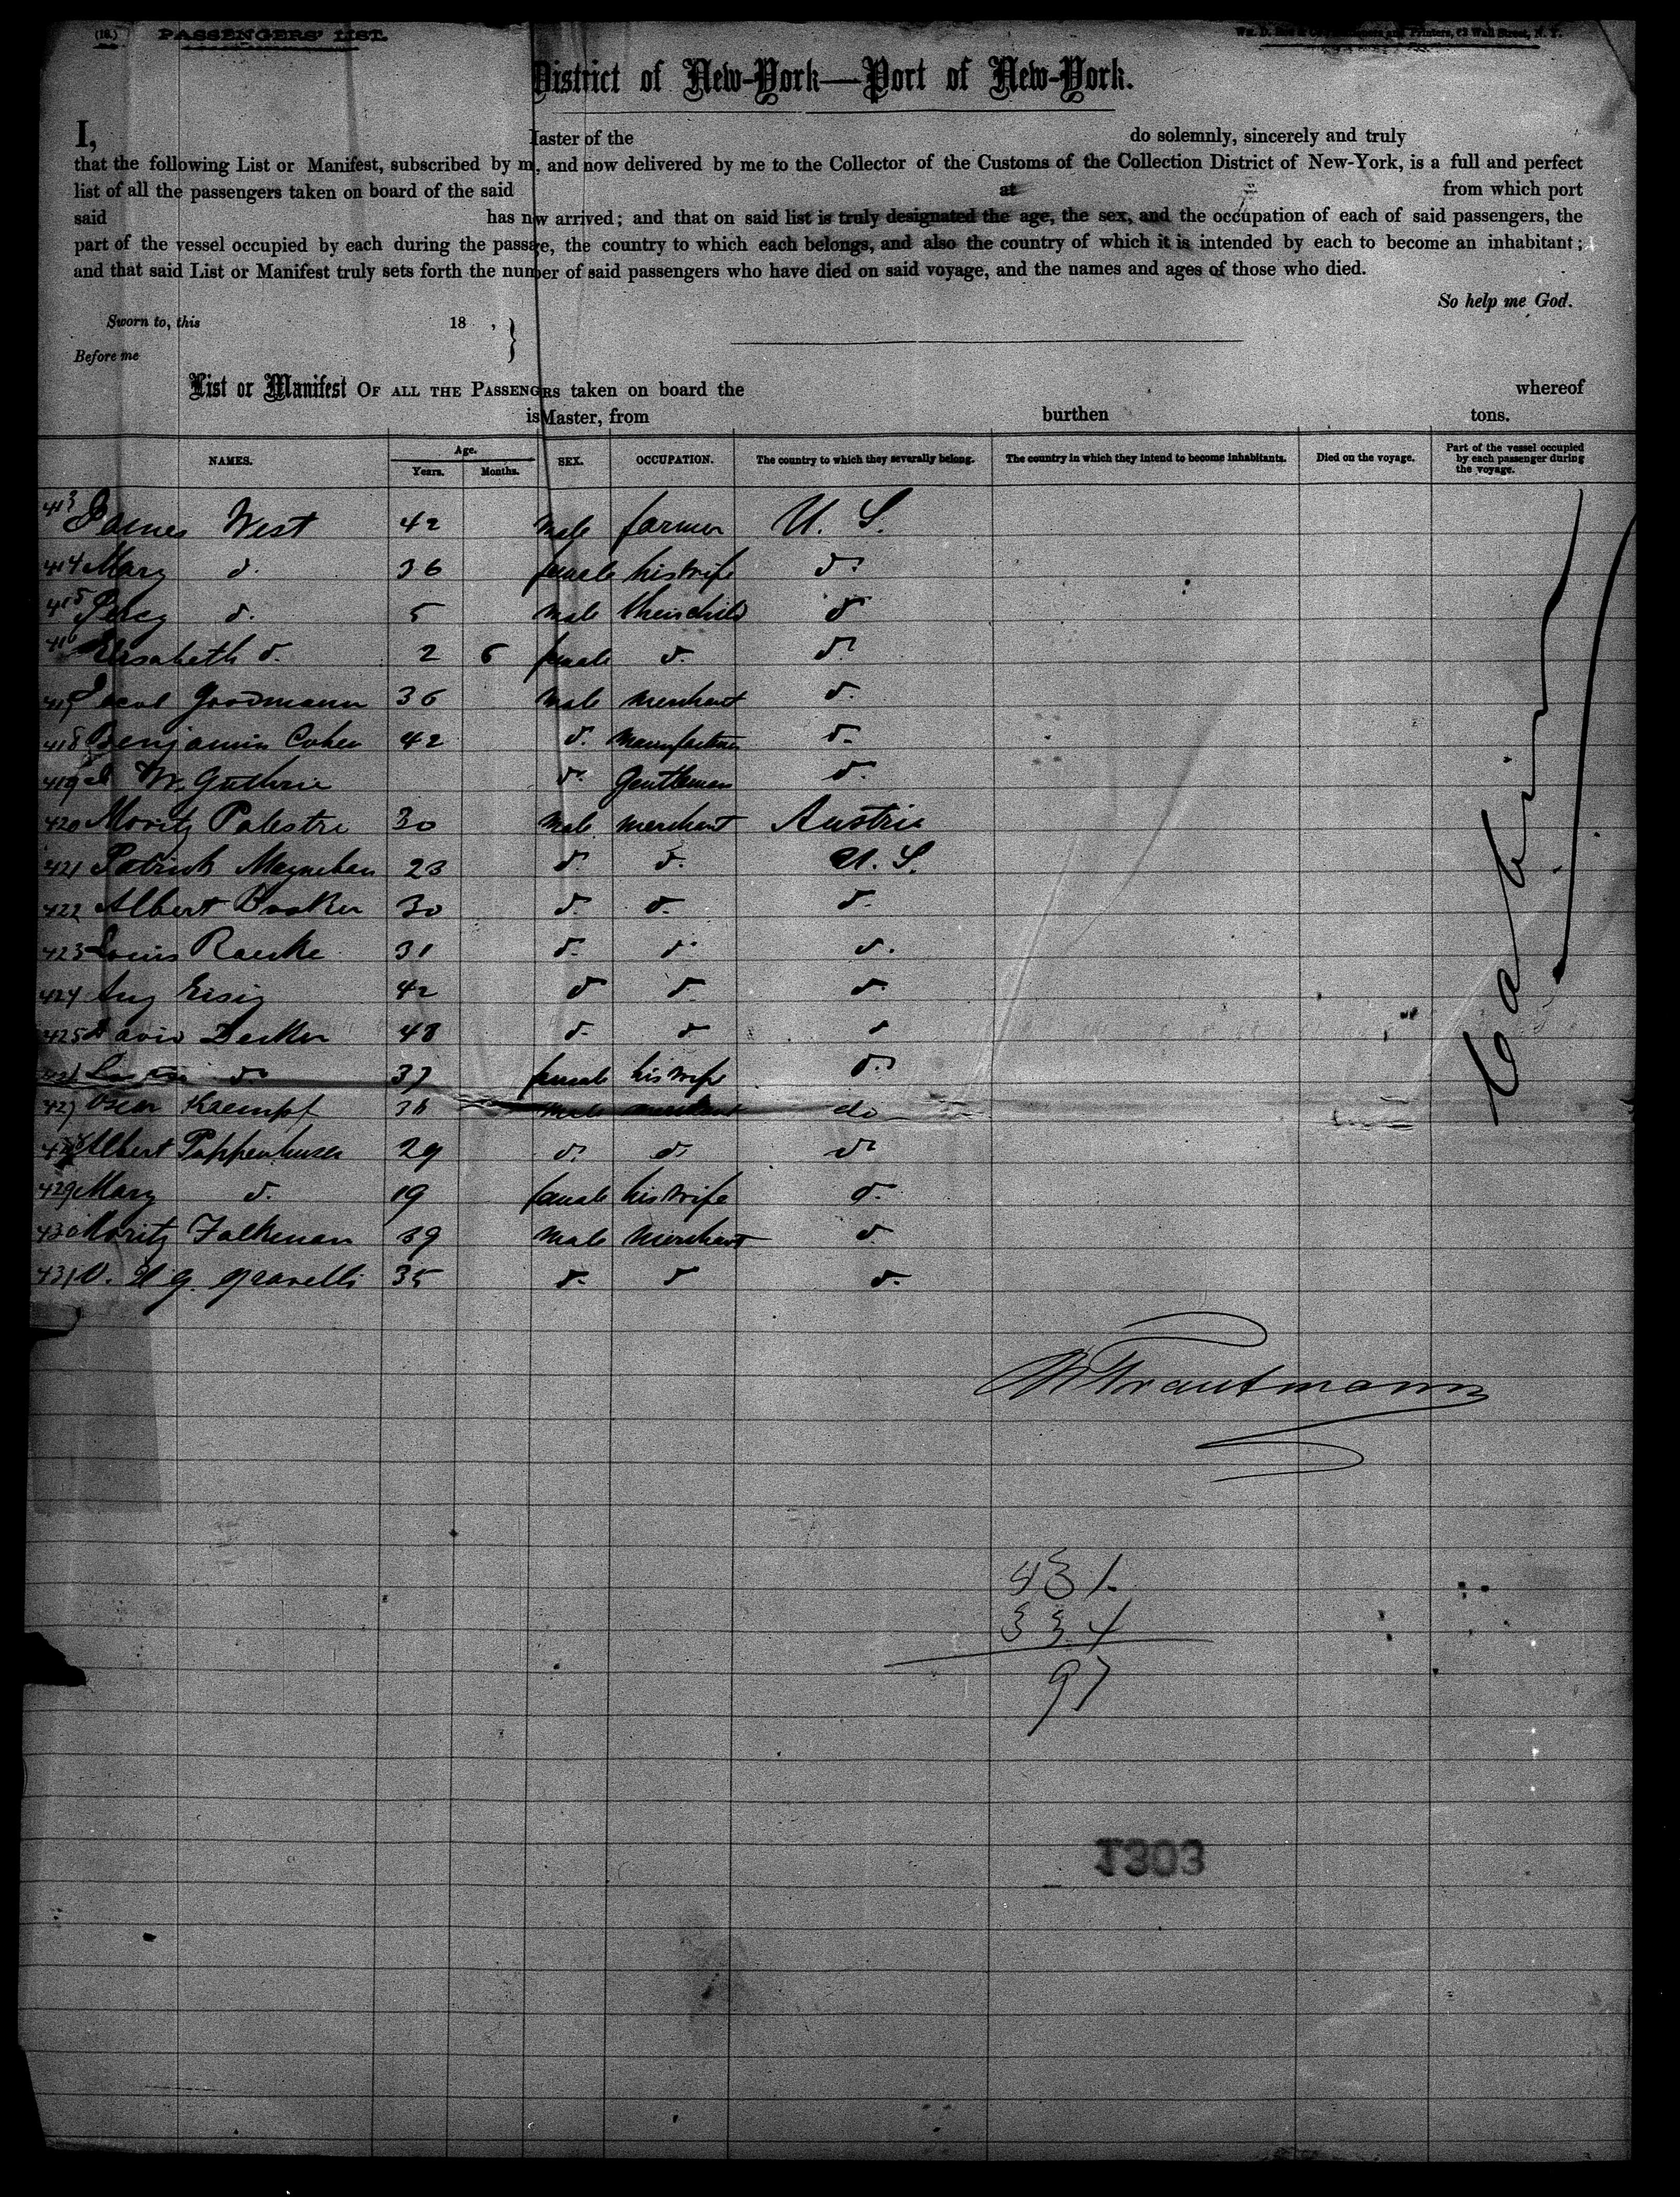 (18.) PASSENGERS' LIST.
District of New-York—Port of New-York.
I, Master of the do solemnly, sincerely and truly
that the following List or Manifest, subscribed by m, and now delivered by me to the Collector of the Customs of the Collection District of New-York, is a full and perfect
list of all the passengers taken on board of the said at from which port
said has now arrived; and that on said list is truly designated the age, the sex, and the occupation of each of said passengers, the
part of the vessel occupied by each during the passage, the country to which each belongs, and also the country of which it is intended by each to become an inhabitant;
and that said List or Manifest truly sets forth the number of said passengers who have died on said voyage, and the names and ages of those who died.
So help me God.
Sworn to, this 18 , }
Before me
List or Manifest OF ALL THE PASSENGERS taken on board the whereof
is Master, from burthen tons.
NAMES. Age. Years. Months. SEX. OCCUPATION. The country to which they severally belong. The country in which they intend to become inhabitants. Died on the voyage. Part of the vessel occupied by each passenger during the voyage.
413 James West 42 male farmer U. S.
414 Mary d. 36 female his wife do
415 Percy d. 5 male their child do
416 Elisabeth d. 2 6 female d. do
417 Jacob Goodmann 36 male merchant d.
418 Benjamin Cohen 42 d. manufacturer d.
419 W. Guthrie d. Gentleman d.
420 Moritz Palestri 30 male merchant Austria
421 Patrick Moynehan 23 d. d. U. S.
422 Albert Booker 30 d. d. d.
423 Louis Raecke 31 d. d. d.
424 Aug Eisig 42 d d. d.
425 David Decker 48 d. d d
426 d. 37 female his wife do
427 Oscar Kaempf 36 male merchant do
428 Albert Pappenhusen 29 d. d. do
429 Mary d. 19 female his wife d.
430 Moritz Falkenan 39 male merchant d.
431 O. H. G. Gravelli 35 d. d d.
Cabin
W Trautmann
431
334
97
1303